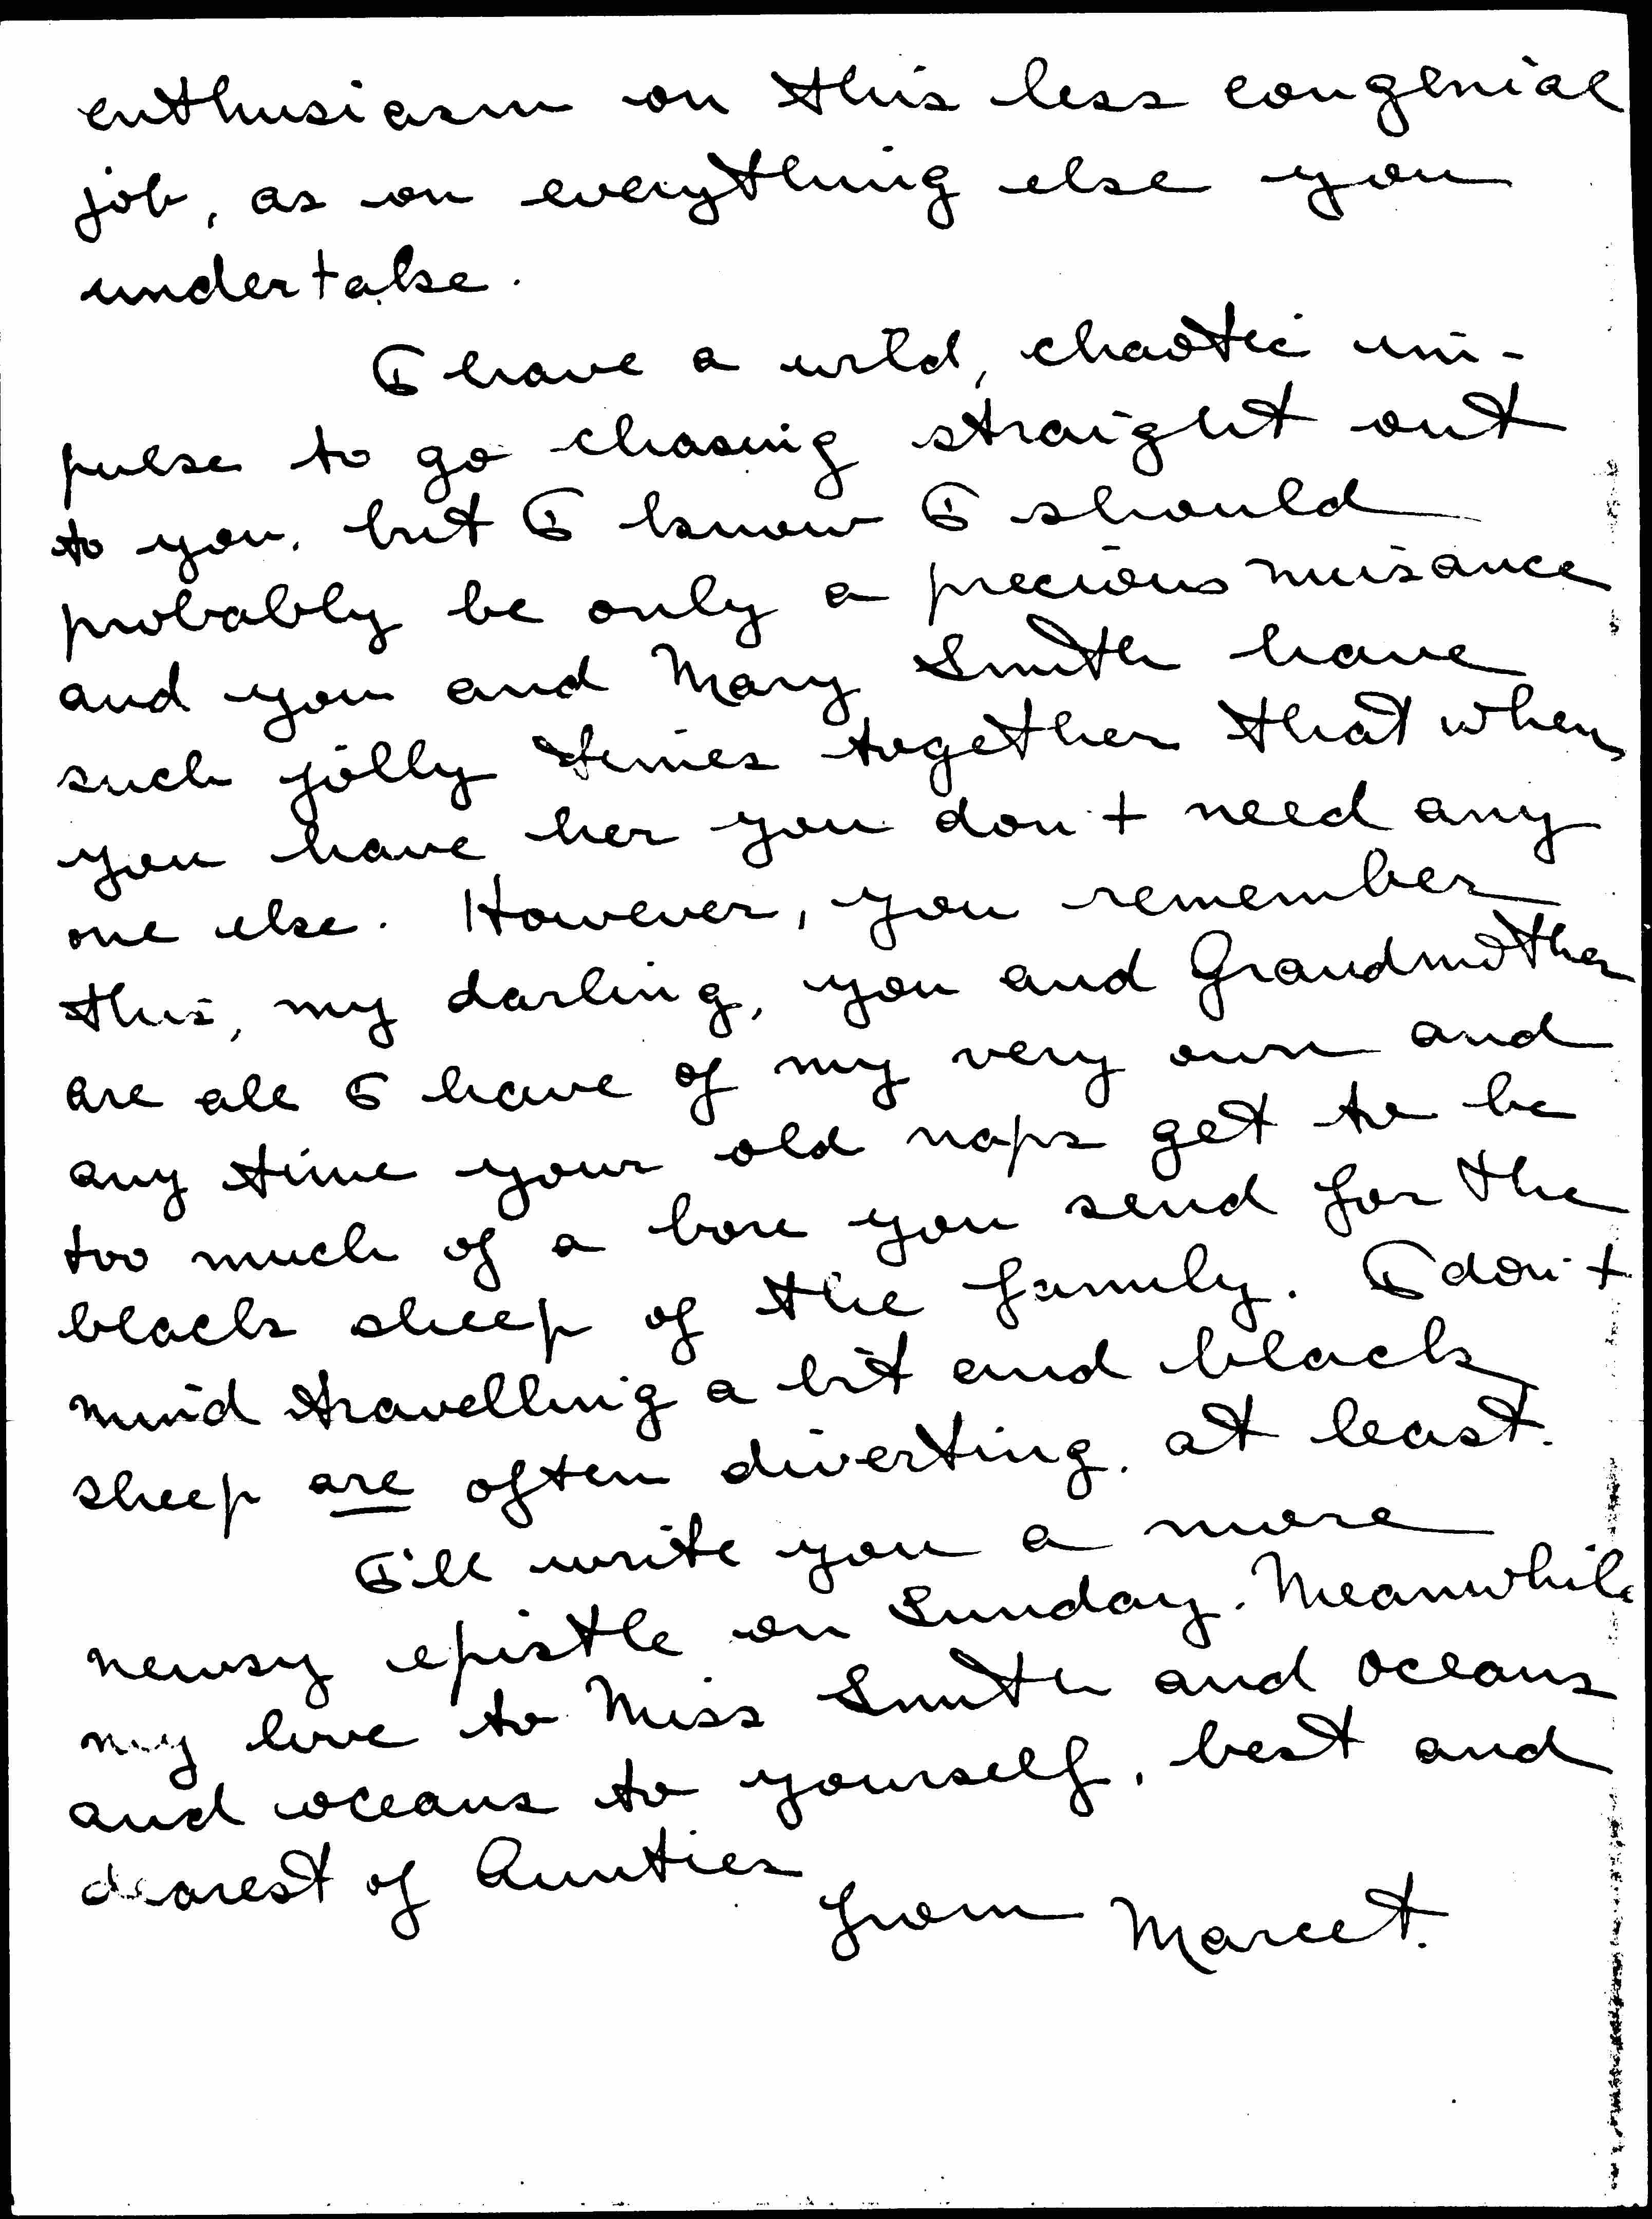 enthusiasm on this less congenial
job, as on everything else you
undertake.
I have a wild, chaotic im-
pulse to go chasing straight out
to you, but I know I should
probably be only a precious nuisance
and you and Mary Smith have
such jolly times together that when
you have her you don't need any
one else. However, you remember
this, my darling, you and Grandmother
are all I have of my very own and
any time your old naps get to be
too much of a bore you send for the
black sheep of the family. I don't
mind travelling a bit and black
sheep are often diverting, at least.
I'll write you a more
newsy epistle on Sunday. Meanwhile
my love to Miss Smith and oceans
and oceans to yourself, best and
dearest of Aunties
from Marcet.